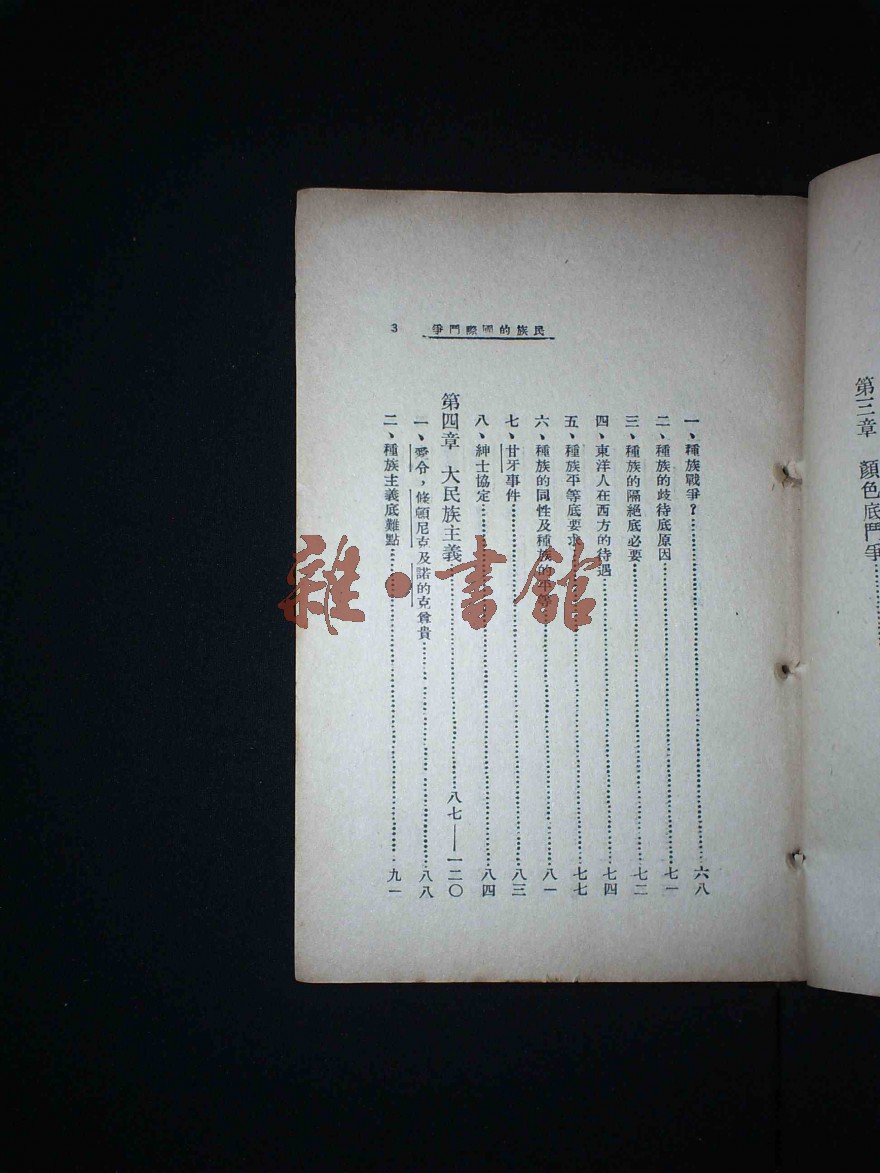 第三章 顏色底鬥爭
民族的國際鬥爭 3
一、種族戰爭？ 六八
二、種族的歧待底原因 七一
三、種族的隔絕底必要 七二
四、東洋人在西方的待遇 七四
五、種族平等底要求 七七
六、種族的同性及種族的 八一
七、甘牙事件 八三
八、紳士協定 八四
第四章 大民族主義 八七——一二〇
一、愛令，條頓尼克及諾的克尊貴 八八
二、種族主義底難點 九一
雜·書館